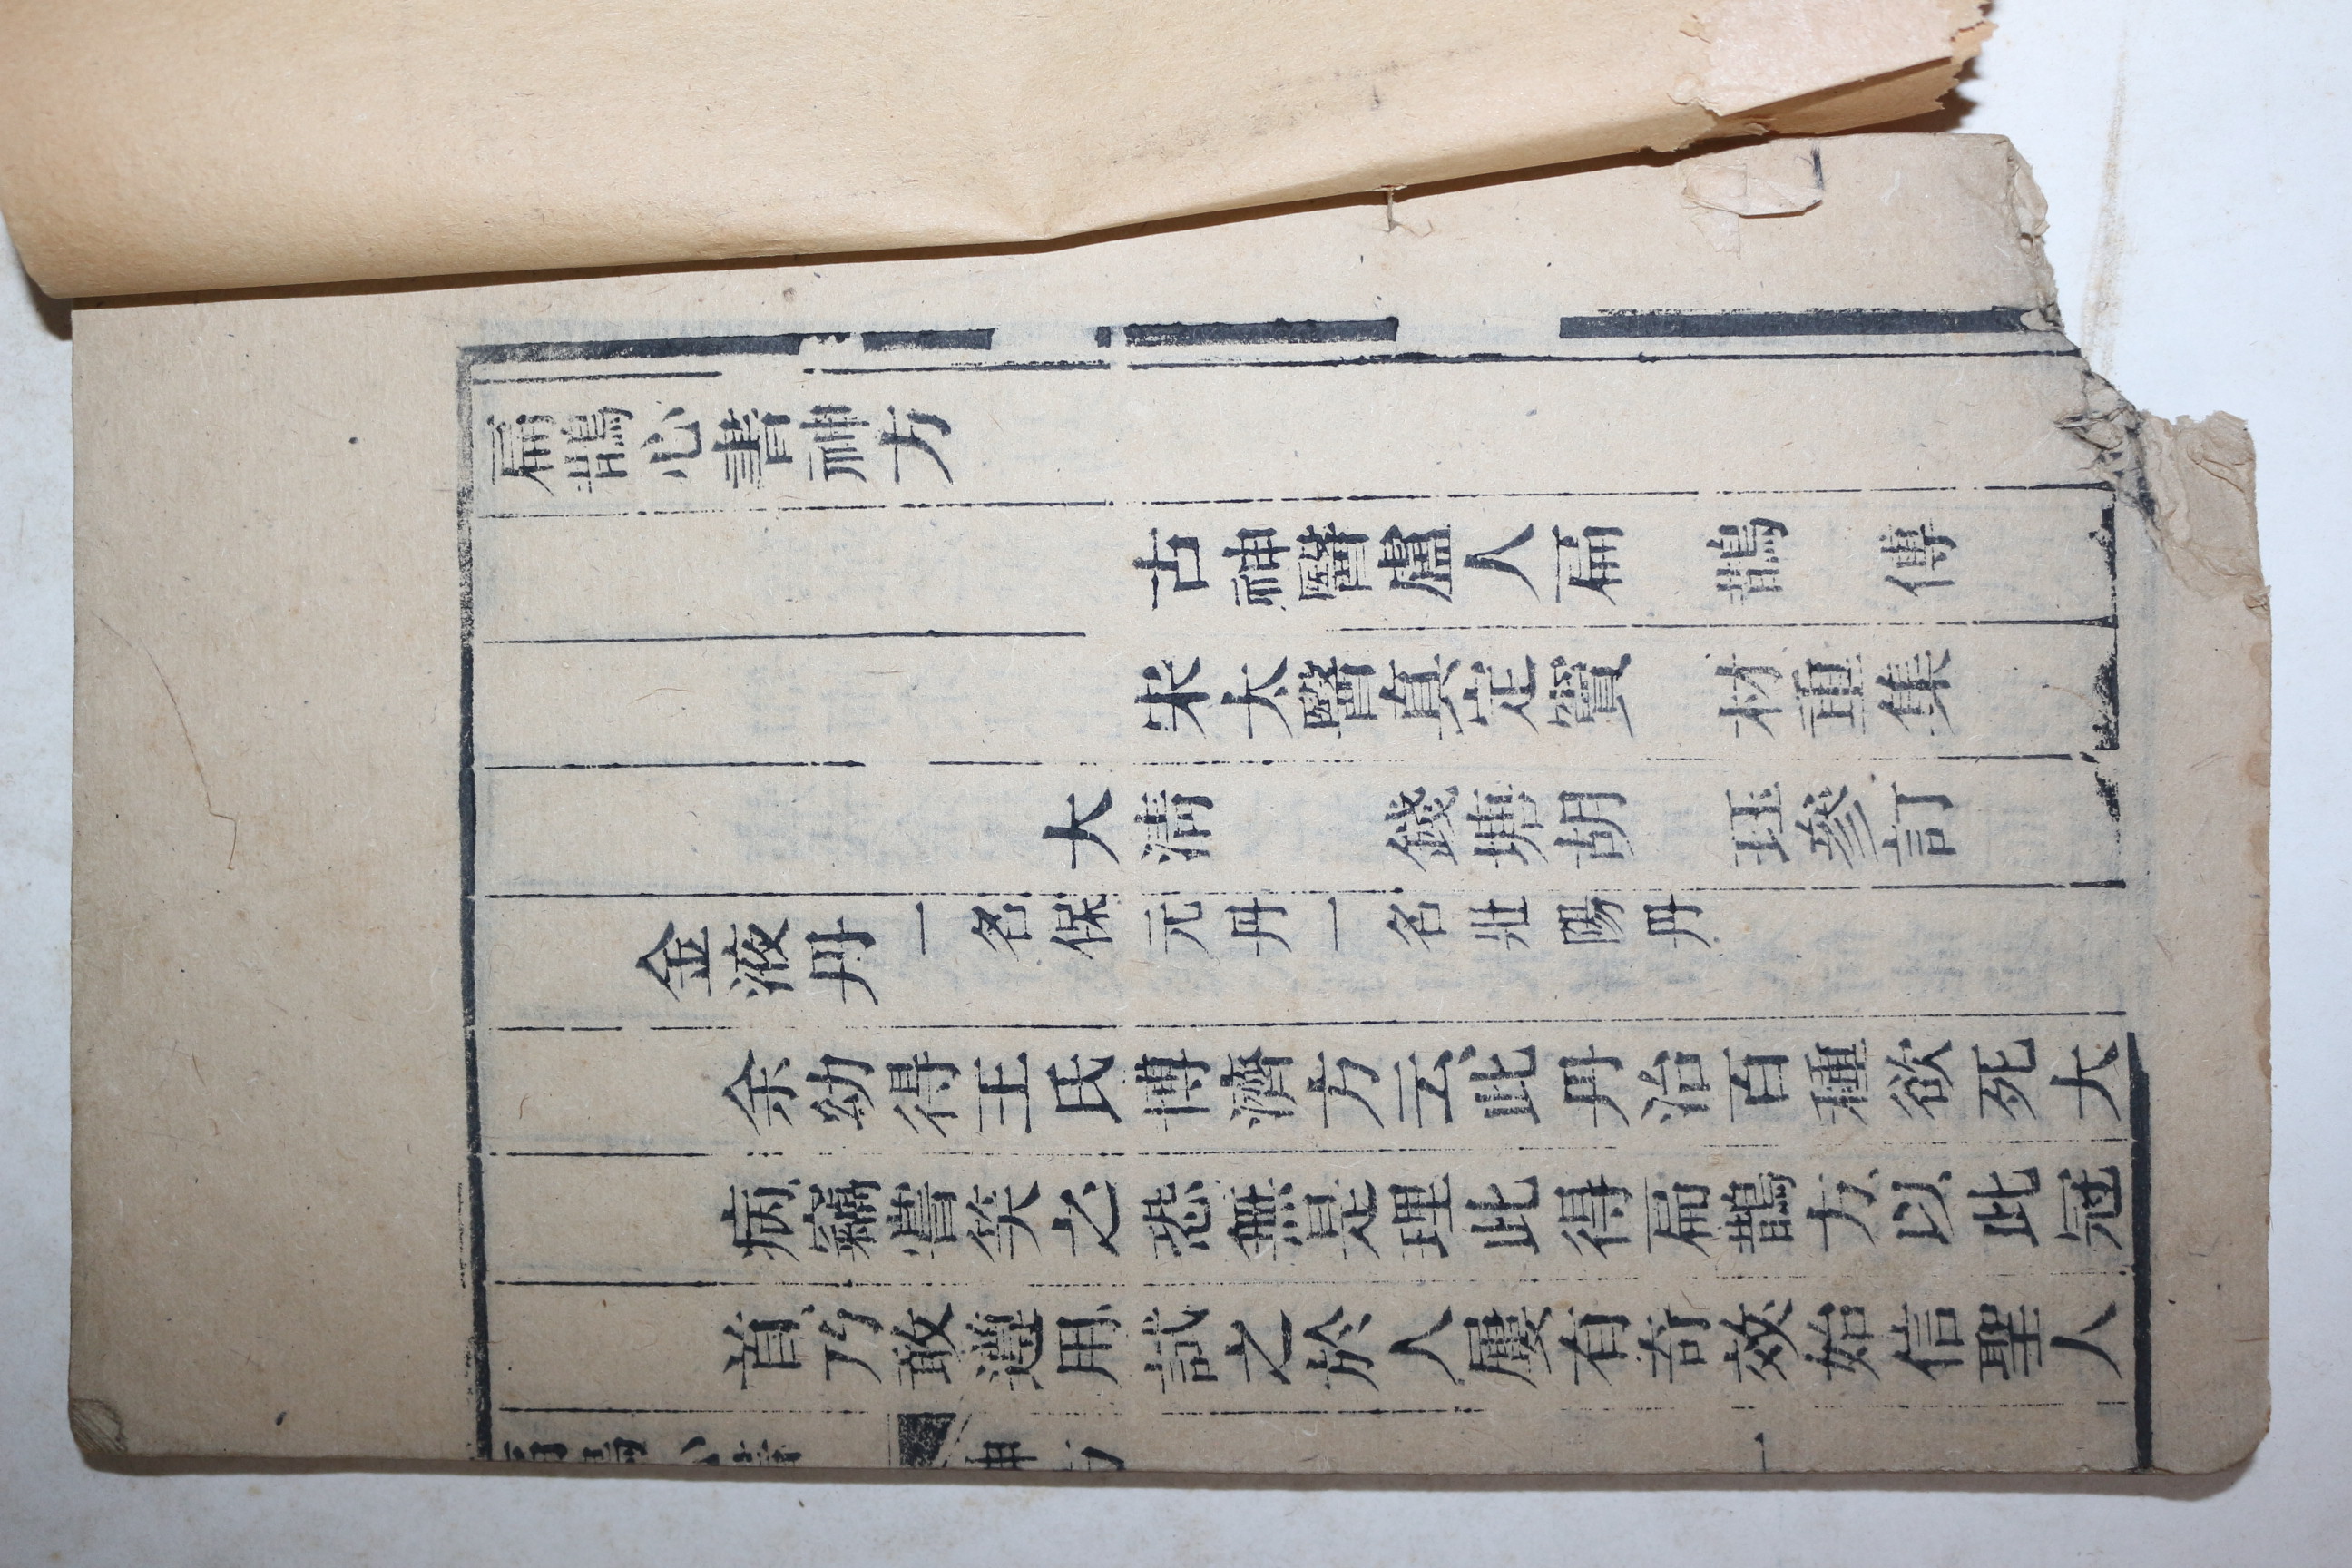 扁鵲心書神方
古神醫盧人扁鵲傳
宋太醫真定竇材重集
大清錢塘胡珏參訂
金液丹一名保元丹一名壯陽丹
余幼得王氏博濟方云此丹治百種欲死大
病竊嘗笑之恐無是理此得扁鵲方以此冠
首乃敢遵用試之於人屢有奇效始信聖人
扁鵲心書 神方 一